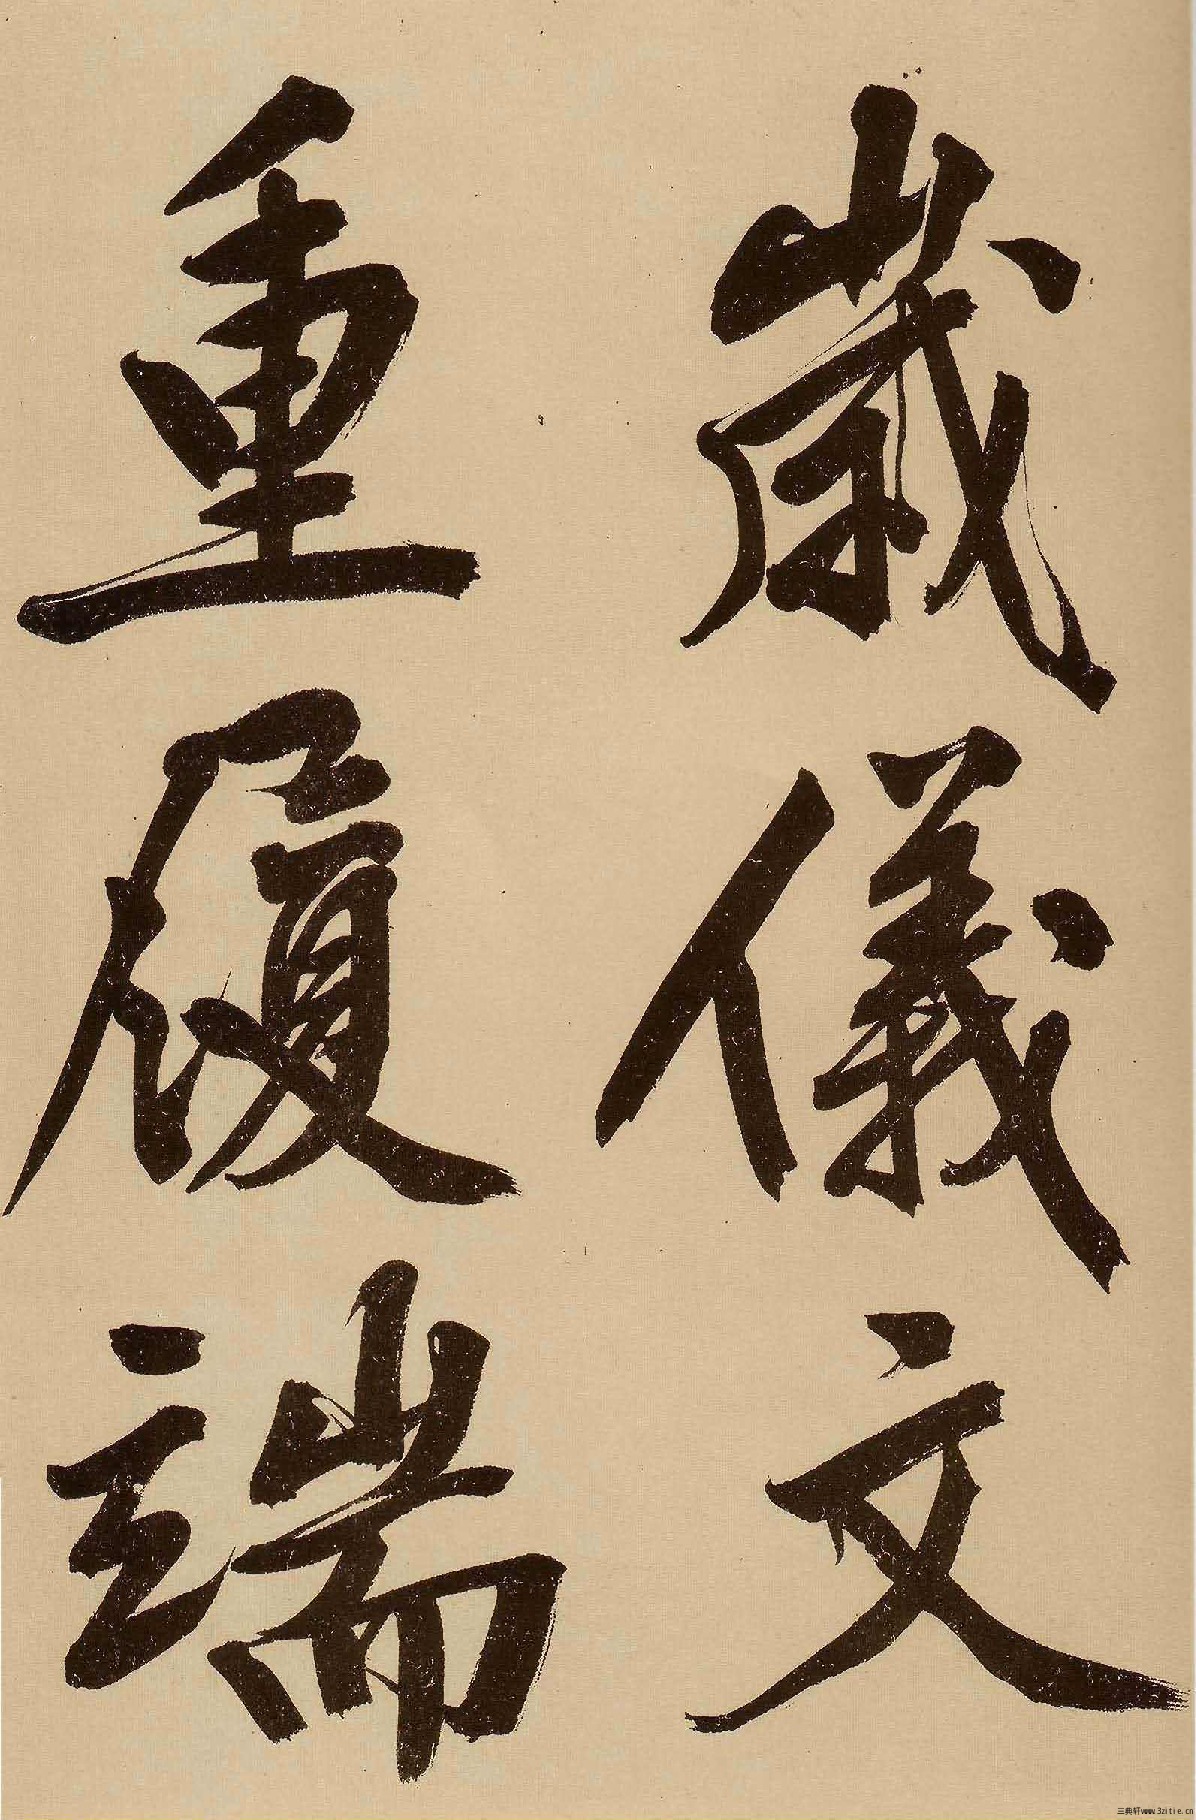 歲儀文
重履端
三典轩www.3zitie.cn